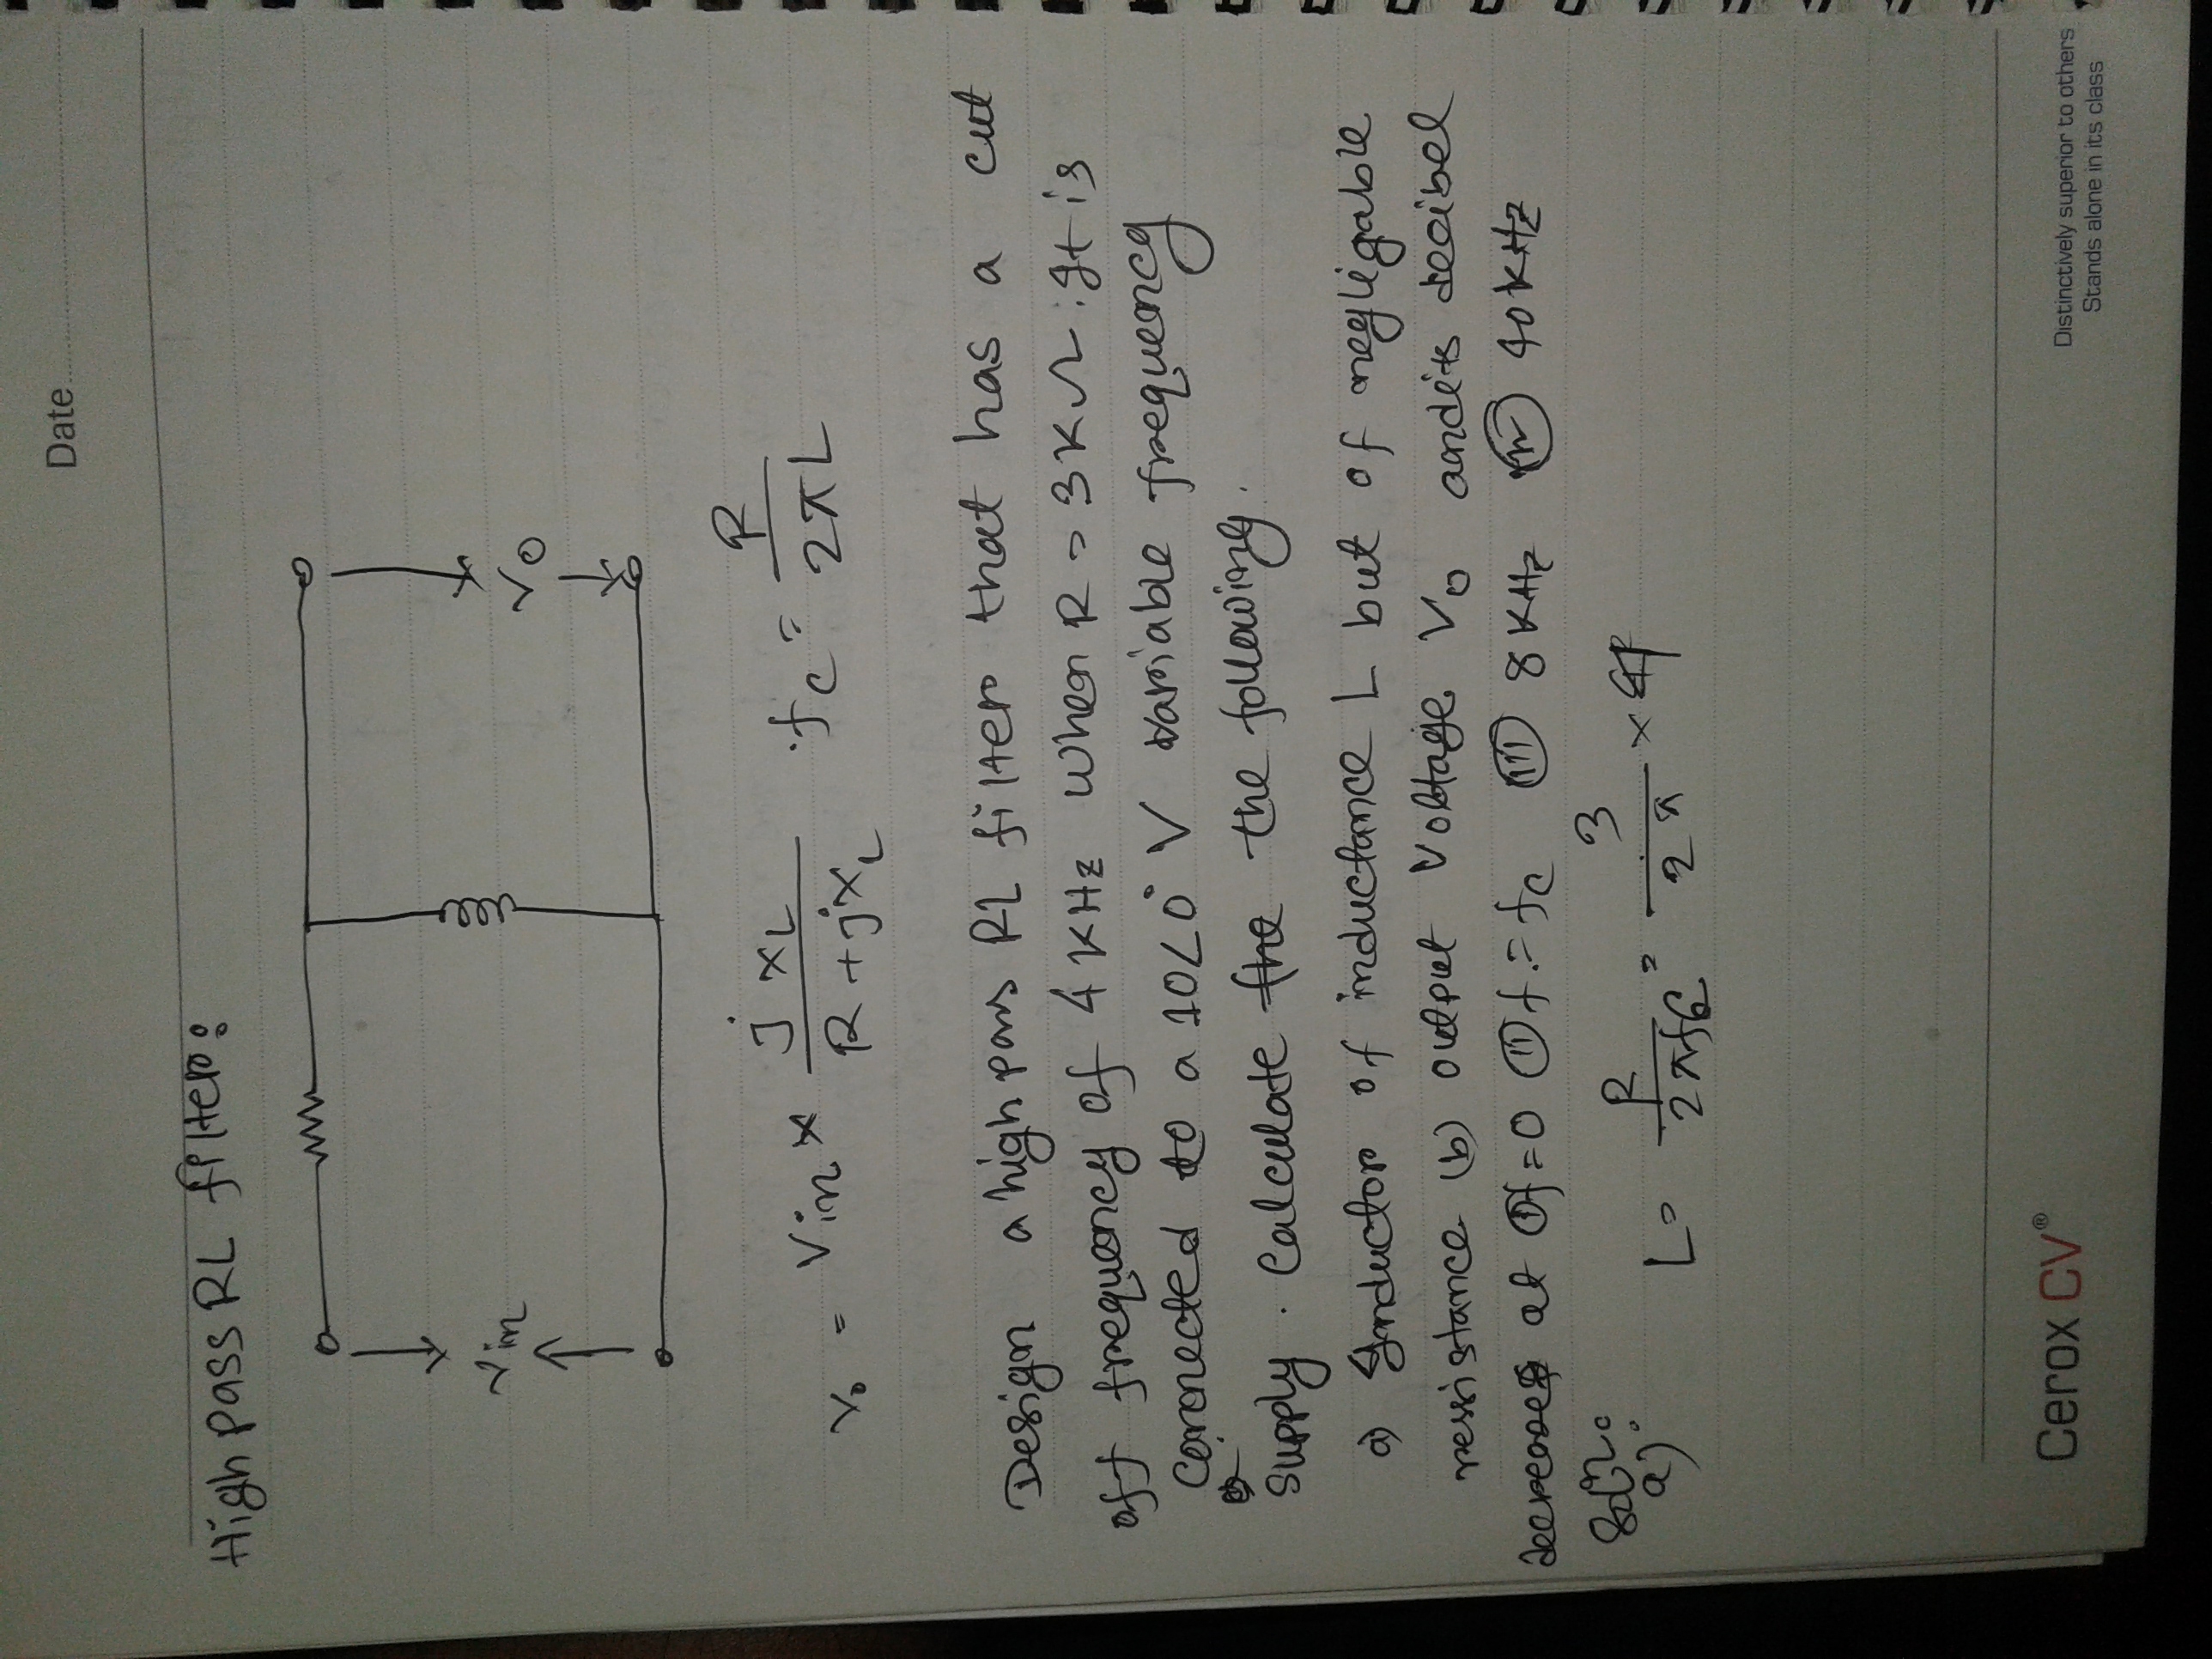 Date
High pass RL filter:
Vin
Vo
Vo = Vin × j XL / R + jXL fc = R / 2πL
Design a high pass RL filter that has a cut
off frequency of 4 KHz when R = 3KΩ. It is
connected to a 10∠0° V variable frequency
supply. Calculate the the following.
a) Inductor of inductance L but of negligable
ressistance (b) output Voltage Vo and its decibel
decreases at (i) f=0 (ii) f = fc (iii) 8 KHz (iv) 40 KHz
Soln:
a) L = R / 2πfc = 3 / 2π × 4
Cerox CV®
Distinctively superior to others
Stands alone in its class